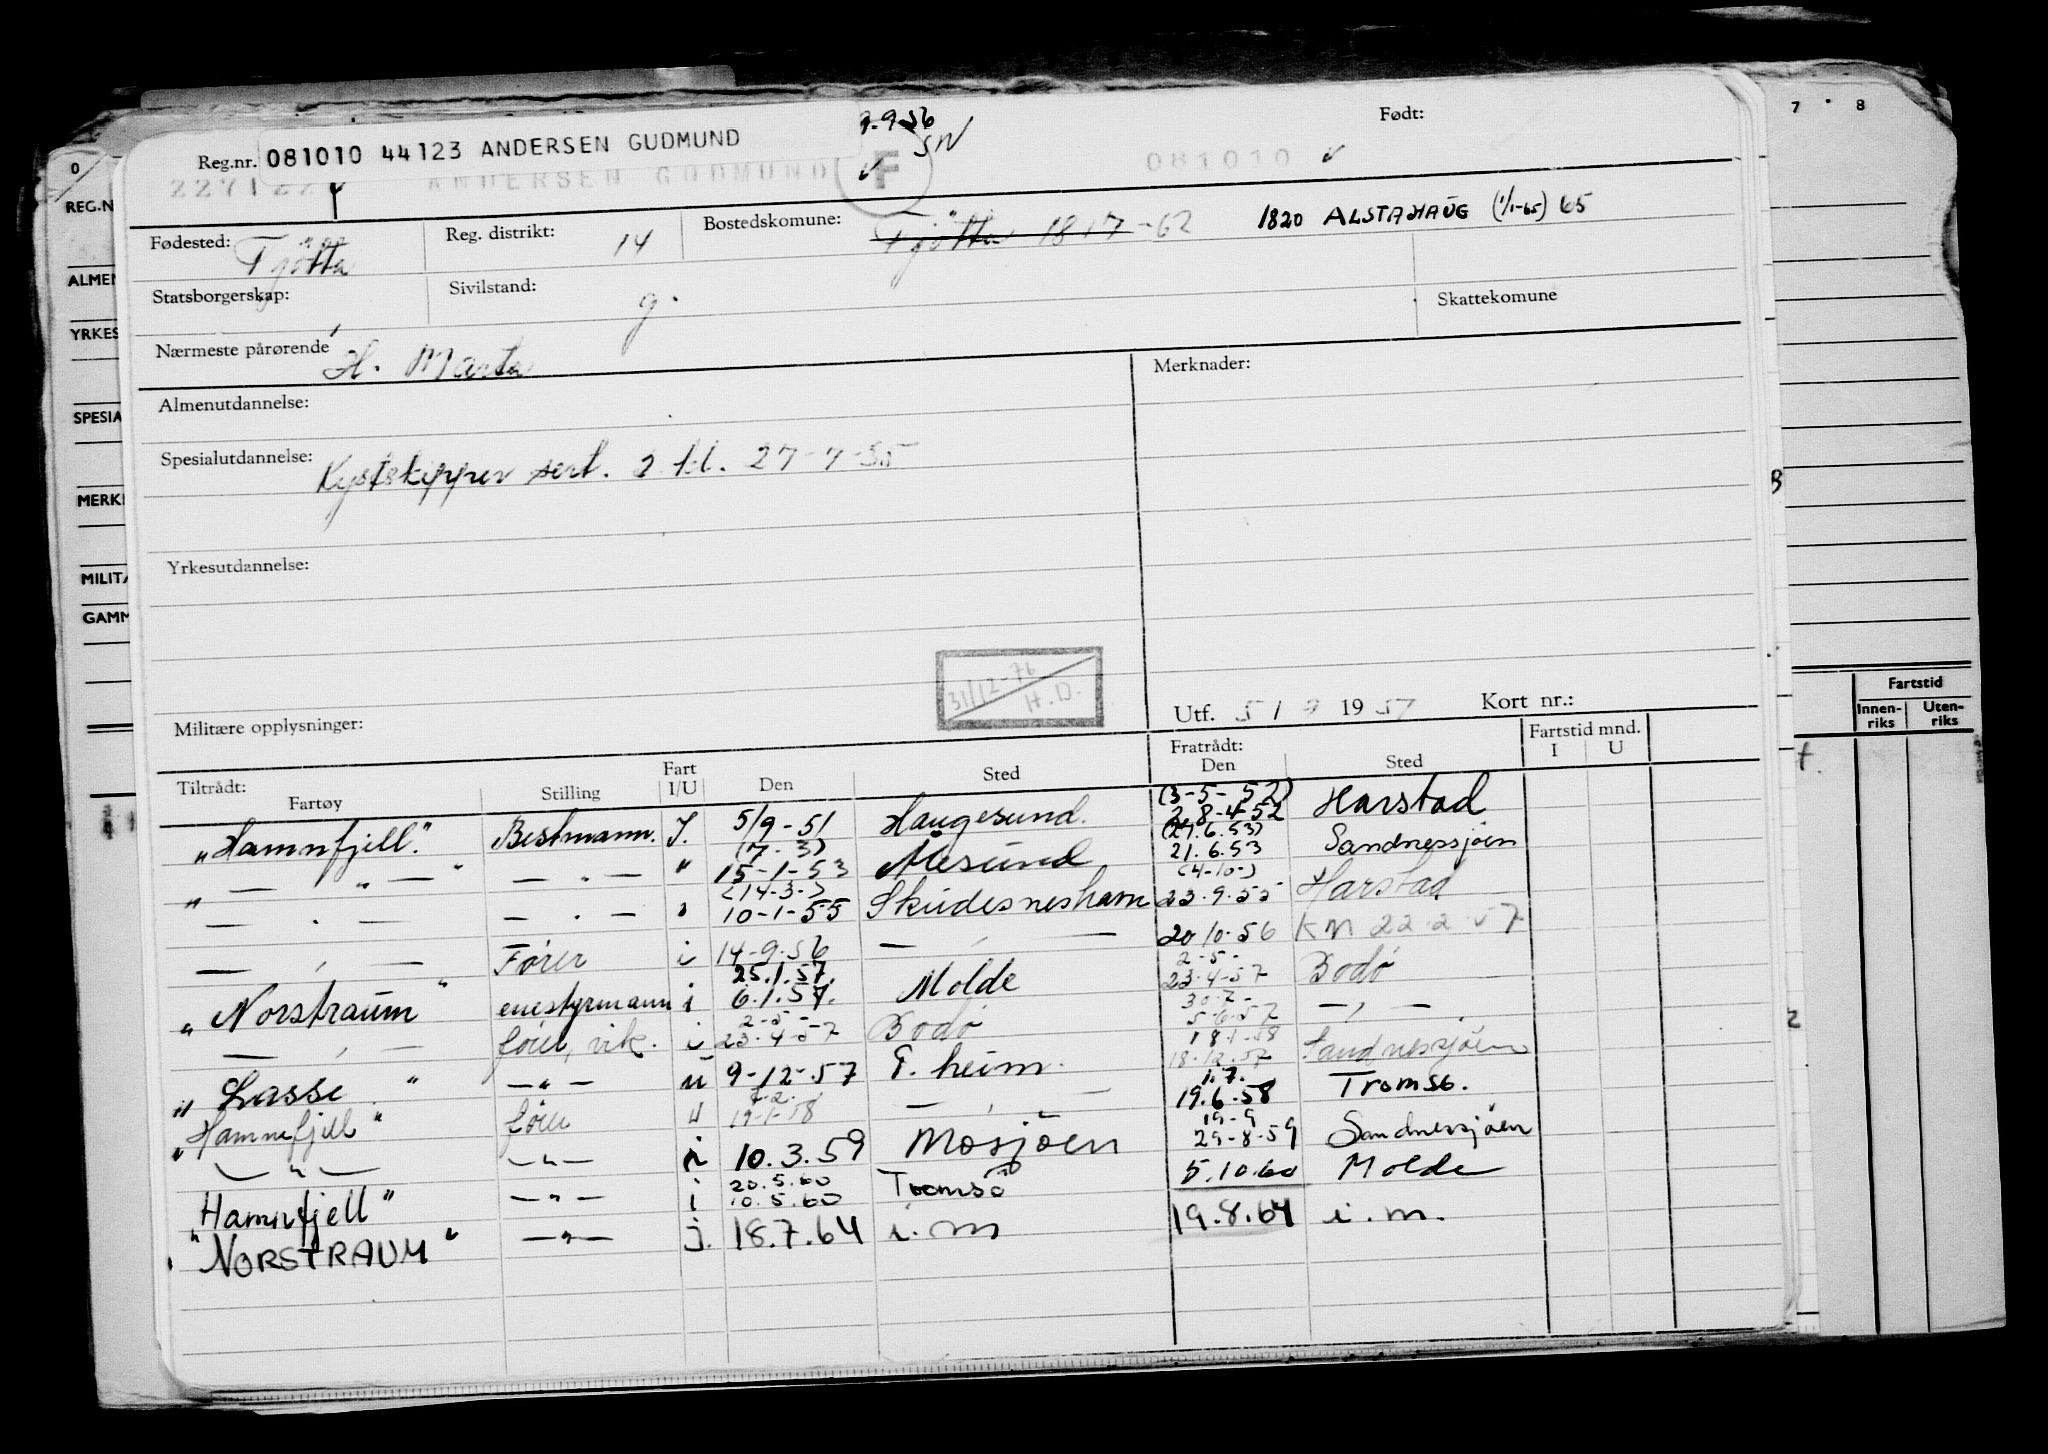 7 8
0
REG.N
ALMEN
YRKES
SPESIA
MERK
MILITA
GAMM
Fartstid
Innen-riks Uten-riks
9.9.56 SN Født:
Reg.nr. 081010 44123 ANDERSEN GUDMUND
ANDERSEN GUDMUND F 081010
Fødested: Tjøtta Reg. distrikt: 14 Bostedskomune: Tjøtta 1817-62 1820 ALSTAHAUG (1/1-65) 65
Statsborgerskap: Sivilstand: g. Skattekomune
Nærmeste pårørende H. Marta
Almenutdannelse: Merknader:
Spesialutdannelse: Kystskipper sert. 2 kl. 27-7-55
Yrkesutdannelse:
31/12-76 H.D.
Militære opplysninger: Utf. 5/9 1957 Kort nr.:
Tiltrådt: Fartøy Stilling Fart I/U Den Sted Fratrådt: Den Sted Fartstid mnd. I U
(3-5-52)
"Hamnfjell" Bestmann. I. 5/9-51 Haugesund. 28-4-52 Harstad
(7-3) (27.6.53)
" — " — " — " — " 15-1-53 Ålesund 21.6.53 Sandnessjøen
(14-3-) (4-10-)
— " — — " — " 10-1-55 Skudesneshavn 23.9.55 Harstad
— " — Fører i 14-9-56 — " — 20/10-56 KM 22.2.57
25.1.57. 2-5-
"Norstraum" enestyrmann i 6.1.57. Molde 23-4-57 Bodø
2-5- 30-7-
— " — fører, vik. i 23-4-57 Bodø 5-6-57 — " —
18-1-58
"Lasse" — " — u 9-12-57 T. heim. 18-12-57 Sandnessjøen
1.7.
"Hamnefjell" fører u 19-1-58 — " — 19.6.58 Tromsö.
19-9
— " — — " — i 10.3.59 Mosjøen 29-8-59 Sandnessjøen
20.5.60
"Hamnfjell" — " — i 10.5.60 Tromsö 5.10.60 Molde
"NORSTRAUM" — " — j. 18.7.64 i. m 19.8.64 i. m.